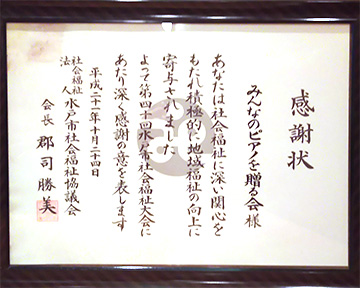 感謝状
みんなのピアノを贈る会様
あなたは社会福祉に深い関心を
もたれ積極的に地域福祉の向上に
寄与されました
よって第四十回水戸市社会福祉大会に
あたり深く感謝の意を表します
平成二十一年十月二十四日
社会福祉法人 水戸市社会福祉協議会
会長 郡司勝美